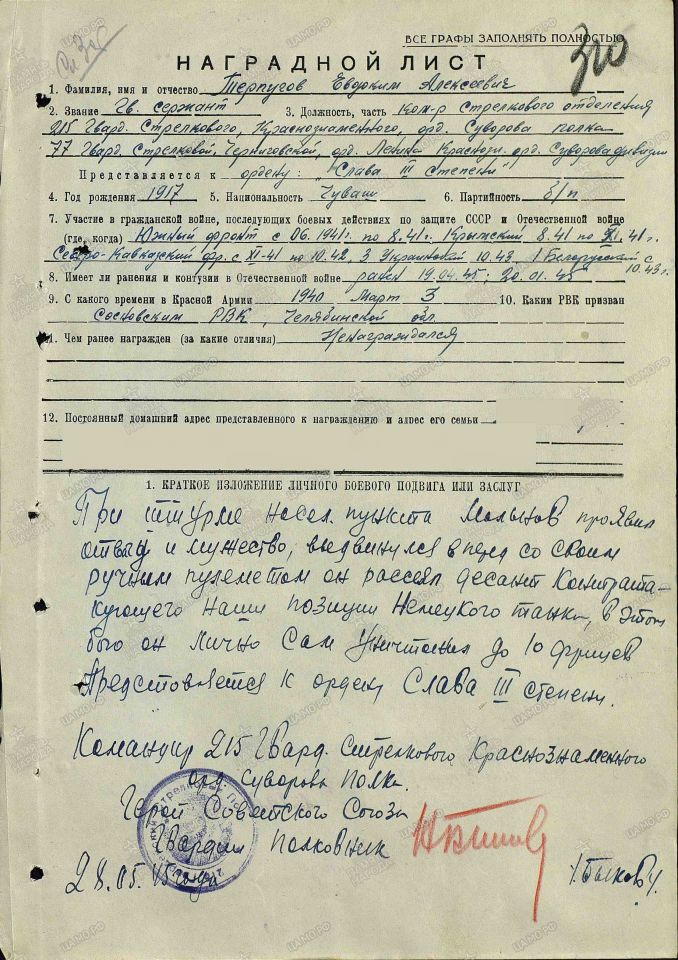 ВСЕ ГРАФЫ ЗАПОЛНЯТЬ ПОЛНОСТЬЮ
НАГРАДНОЙ ЛИСТ
1. Фамилия, имя и отчество Терпугов Евдоким Алексеевич
2. Звание Гв. сержант 3. Должность, часть ком-р стрелкового отделения
215 Гвард. Стрелкового, Краснознаменного, орд. Суворова полка
77 Гвард. Стрелковой, Черниговской, орд. Ленина Краснозн. орд. Суворова дивизии
Представляется к ордену: "Слава III степени"
4. Год рождения 1917 5. Национальность Чуваш 6. Партийность б/п
7. Участие в гражданской войне, последующих боевых действиях по защите СССР и Отечественной войне
(где, когда) Южный фронт с 06.1941г. по 8.41г. Крымский 8.41 по XI.41г.
Северо-Кавказский фр. с XI-41 по 10.42, 3 Украинский 10.43, 1 Белорусский с
10.43г.
8. Имеет ли ранения и контузии в Отечественной войне ранен 19.04.45; 20.01.45
9. С какого времени в Красной Армии 1940 Март 3 10. Каким РВК призван
Сосновским РВК, Челябинской обл.
11. Чем ранее награжден (за какие отличия) Ненаграждался
12. Постоянный домашний адрес представленного к награждению и адрес его семьи
1. КРАТКОЕ ИЗЛОЖЕНИЕ ЛИЧНОГО БОЕВОГО ПОДВИГА ИЛИ ЗАСЛУГ
При штурме насел. пункта проявил
отвагу и мужество, выдвинулся вперед со своим
ручным пулеметом он рассеял десант контрата-
кующего наши позиции Немецкого танка, в этом
бою он лично сам уничтожил до 10 фрицев
Представляется к ордену Слава III степени.
Командир 215 Гвард. Стрелкового Краснознаменного
орд. Суворова Полка
Герой Советского Союза
Гвардии Полковник
/Быков/.
28.05.45 года